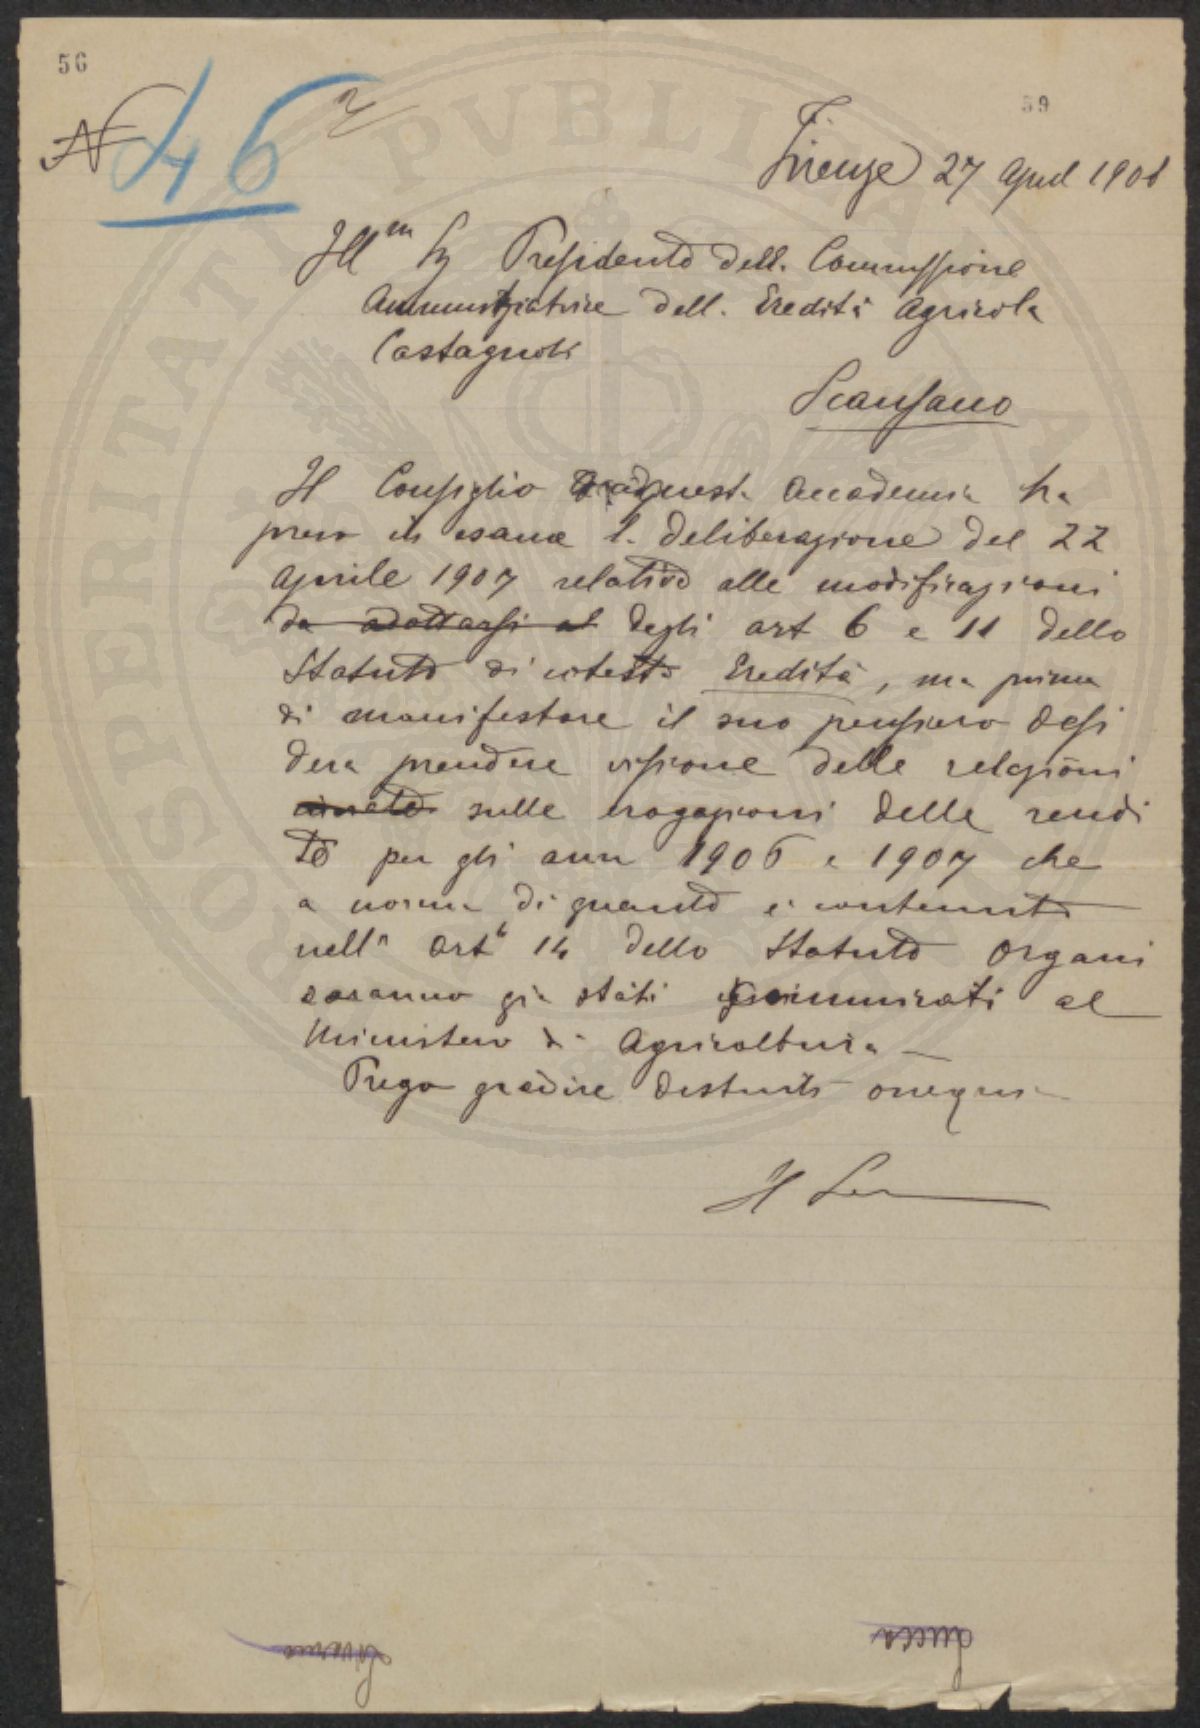 56
59
N 46
Firenze 27 April 1908
Ill.mo Sg Presidente dell. Commissione
Amministratrice dell. Eredità Agricola
Castagnoli
Scansano
Il Consiglio di questa Accademia ha
preso in esame l. deliberazione del 22
Aprile 1907 relative alle modificazioni
da adottarsi al degli art 6 e 11 dello
Statuto di cotesta Eredità, ma prima
di manifestare il suo pensiero desi
dera prendere visione delle relazioni
sulle erogazioni delle rendi
te per gli anni 1906 e 1907 che
a norma di quanto è contenuto
nell' art 14 dello Statuto Organi
saranno già stati comunicati al
Ministero di Agricoltura
Prego gradire distinti ossequi
Il Seg
Livorno
Lucca
PROSPERITATI PVBLICAE